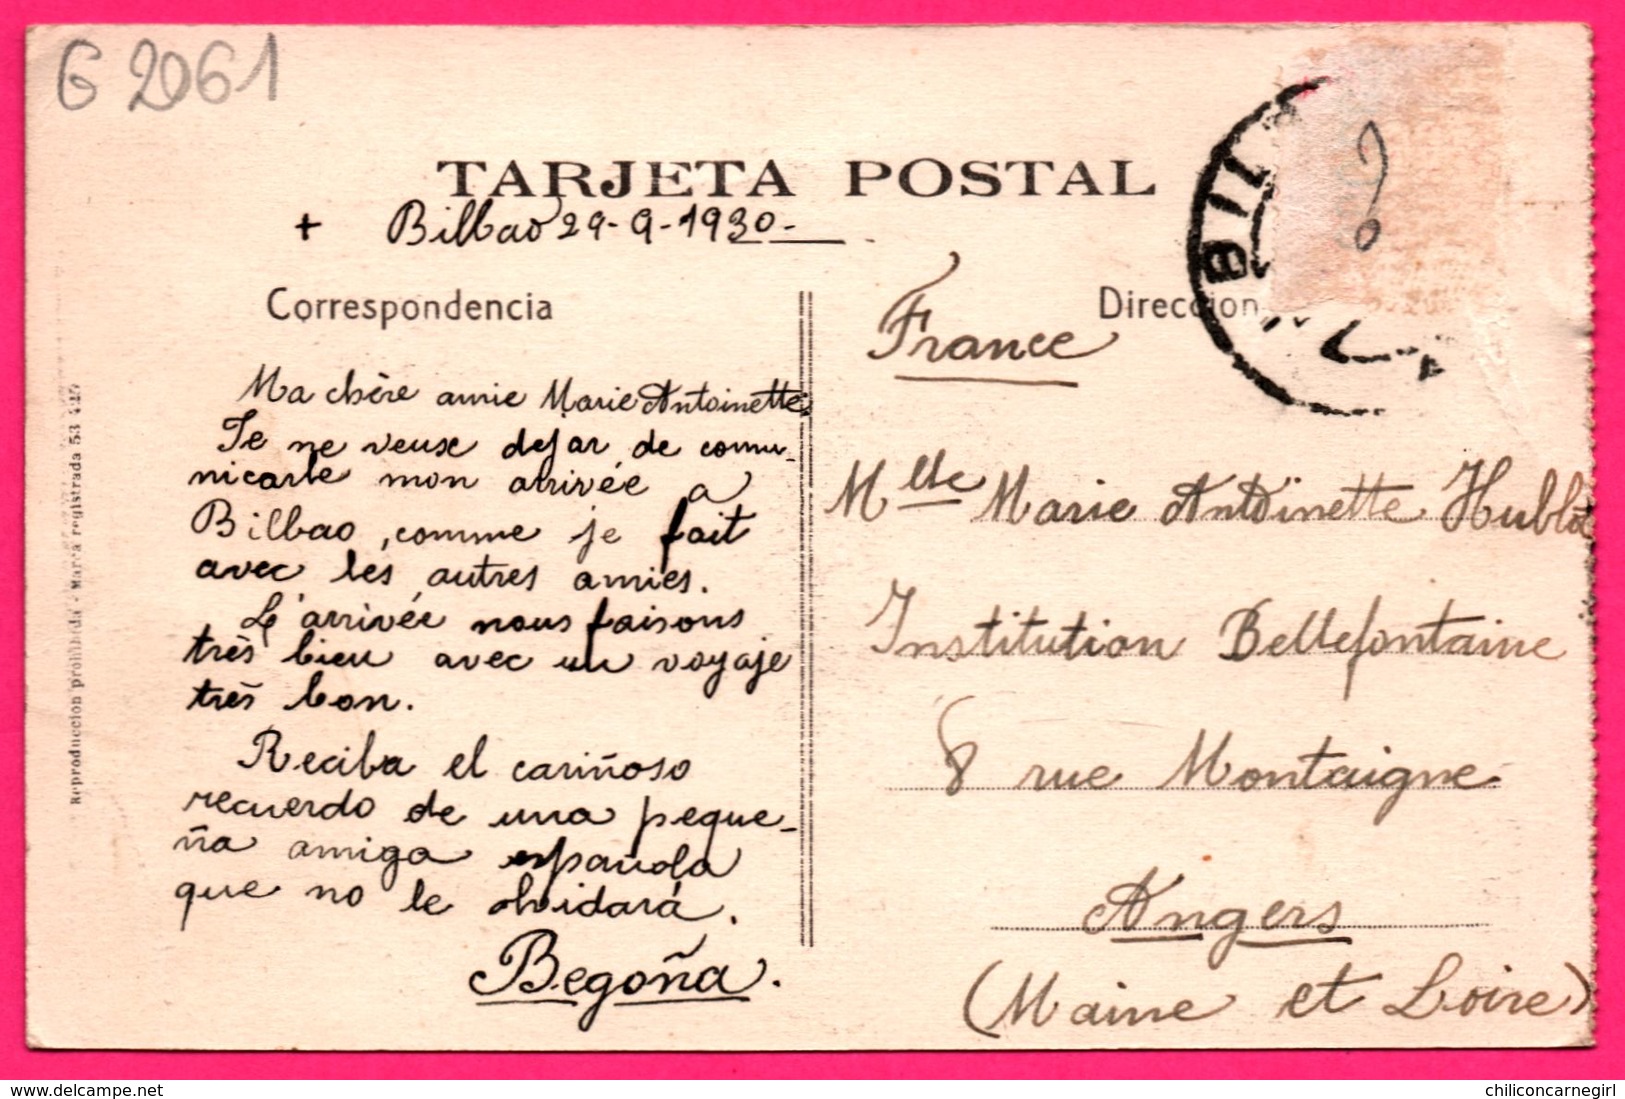 G 2061
TARJETA POSTAL
+ Bilbao 29-9-1930.-
Correspondencia
Direccion
BIL
France
Ma chère amie Marie Antoinette
Je ne veux dejar de comu-
nicarle mon arrivée a
Bilbao, comme je fait
avec les autres amies.
L'arrivée nous faisons
très bieu avec un voyaje
très bon.
Reciba el cariñoso
recuerdo de una peque-
ña amiga española
que no le olvidará.
Begoña.
Mlle Marie Antoinette Hublot
Institution Bellefontaine
8 rue Montaigne
Angers
(Maine et Loire)
Reproduccion prohibida - Marca registrada 53
chiliconcarnegirl